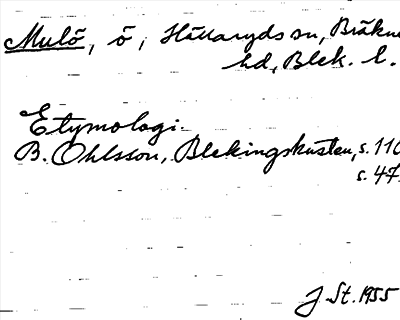 Mulö, ö, Hällaryds sn, Bräkne
hd, Blek. l.
Etymologi.
B. Ohlsson, Blekingskusten, s. 110
s. 47
J St. 1955